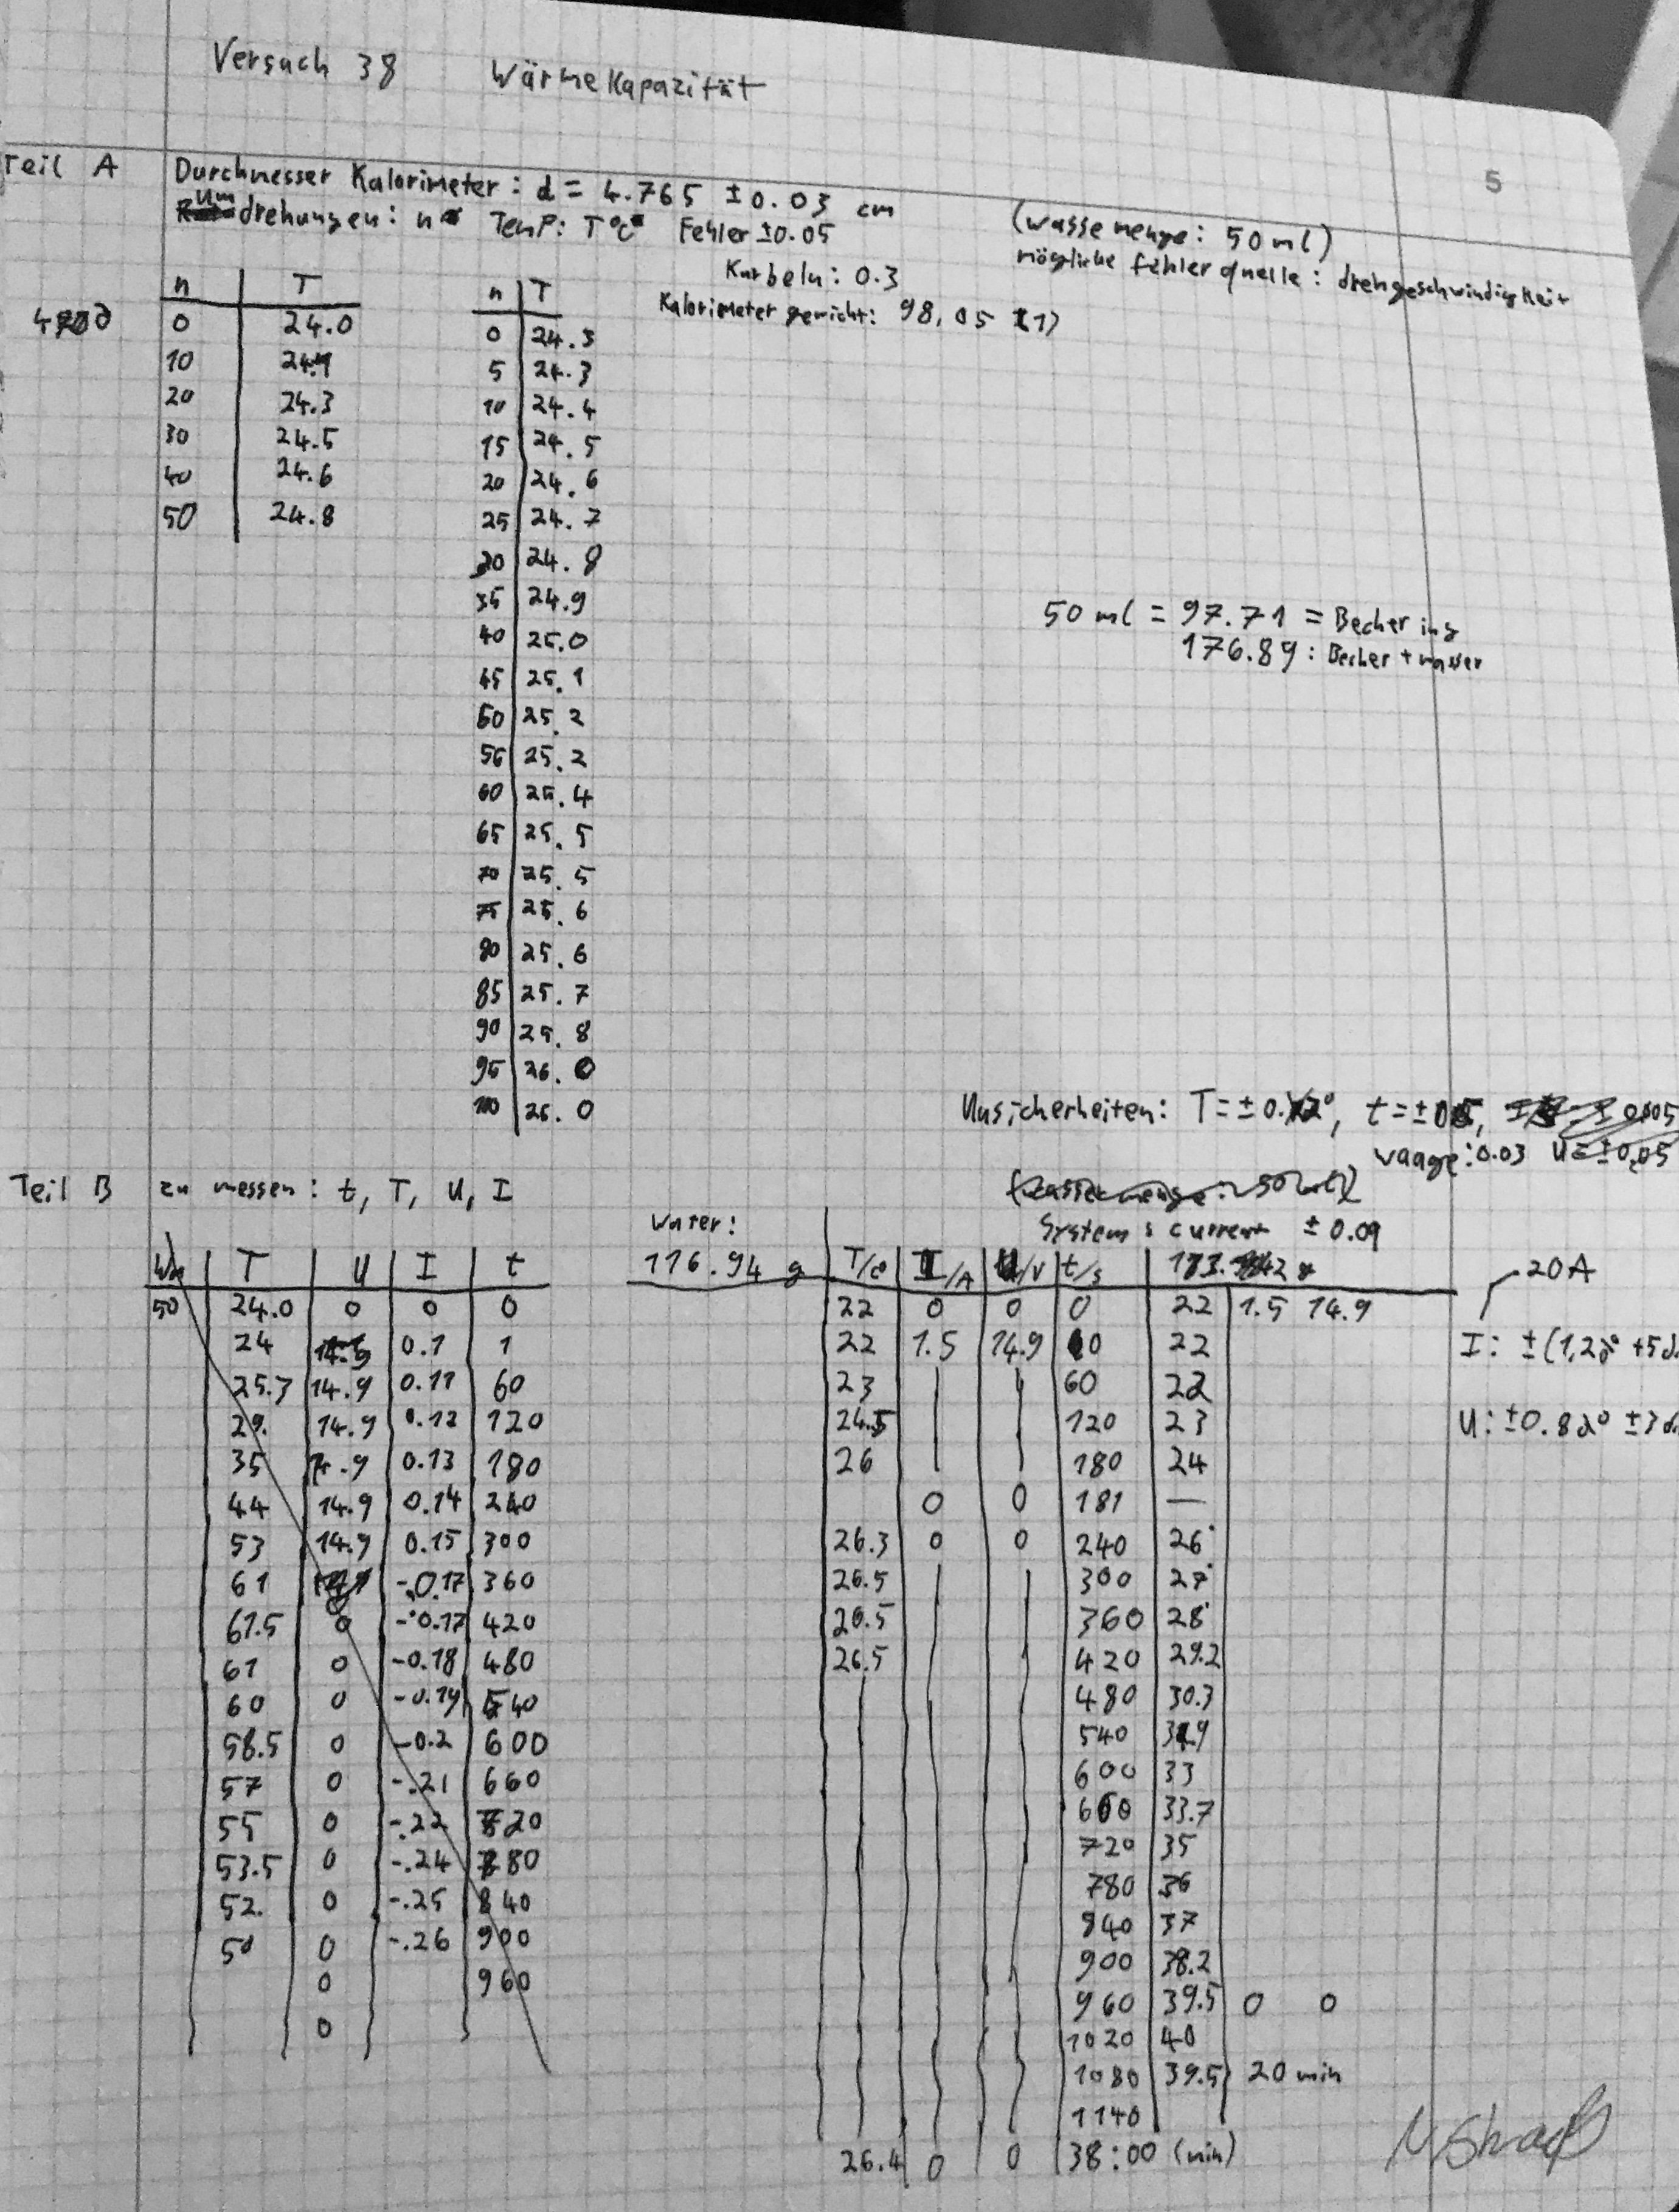 Versuch 38 Wärmekapazität
5
Teil A Durchmesser Kalorimeter: d = 4.765 ±0.03 cm
Umdrehungen: n Temp: T°C Fehler ±0.05 (wassemenge: 50 ml)
Kurbeln: 0.3 mögliche fehler quelle: drehgeschwindigkeit
Kalorimeter gewicht: 98,05
n T
0 24.0
10
20 24.3
30 24.5
40 24.6
50 24.8
n T
0 24.3
5 24.3
10 24.4
15 24.5
20 24.6
25 24.7
30 24.8
35 24.9
40 25.0
45 25.1
50 25.2
55 25.2
60 25.4
65 25.5
70 25.5
75 25.6
80 25.6
85 25.7
90 25.8
95 26.0
100 26.0
50 ml = 97.71 = Becher in g
176.89: Becher + wasser
Unsicherheiten: T=±0. t=±
waage: 0.03 U=±0.05
Teil B zu messen: t, T, U, I
System: current ±0.09
T U I t
50 24.0 0 0 0
24 0.1 1
25.3 14.9 0.11 60
29. 14.9 0.12 120
35 14.9 0.13 180
44 14.9 0.14 240
53 14.9 0.15 300
61 -0.17 360
61.5 0 -0.17 420
61 0 -0.18 480
60 0 -0.19 540
58.5 0 -0.2 600
57 0 -.21 660
55 0 -.22 720
53.5 0 -.24 780
52. 0 -.25 840
50 0 -.26 900
0 960
0
water:
116.94 g
T/c° I/A U/V t/s
22 0 0 0 22 1.5 14.9
22 1.5 14.9 22
23 60 22
24.5 120 23
26 180 24
0 0 181 —
26.3 0 0 240 26
26.5 300 27
26.5 360 28
26.5 420 29.2
480 30.3
540
600 33
660 33.7
720 35
780 36
840 37
900 38.2
960 39.5 0 0
1020 40
1080 39.5 20 min
1140
26.4 0 0 38:00 (min)
20A
I: ±(1,2 +5d
U: ±0.8 ±3d